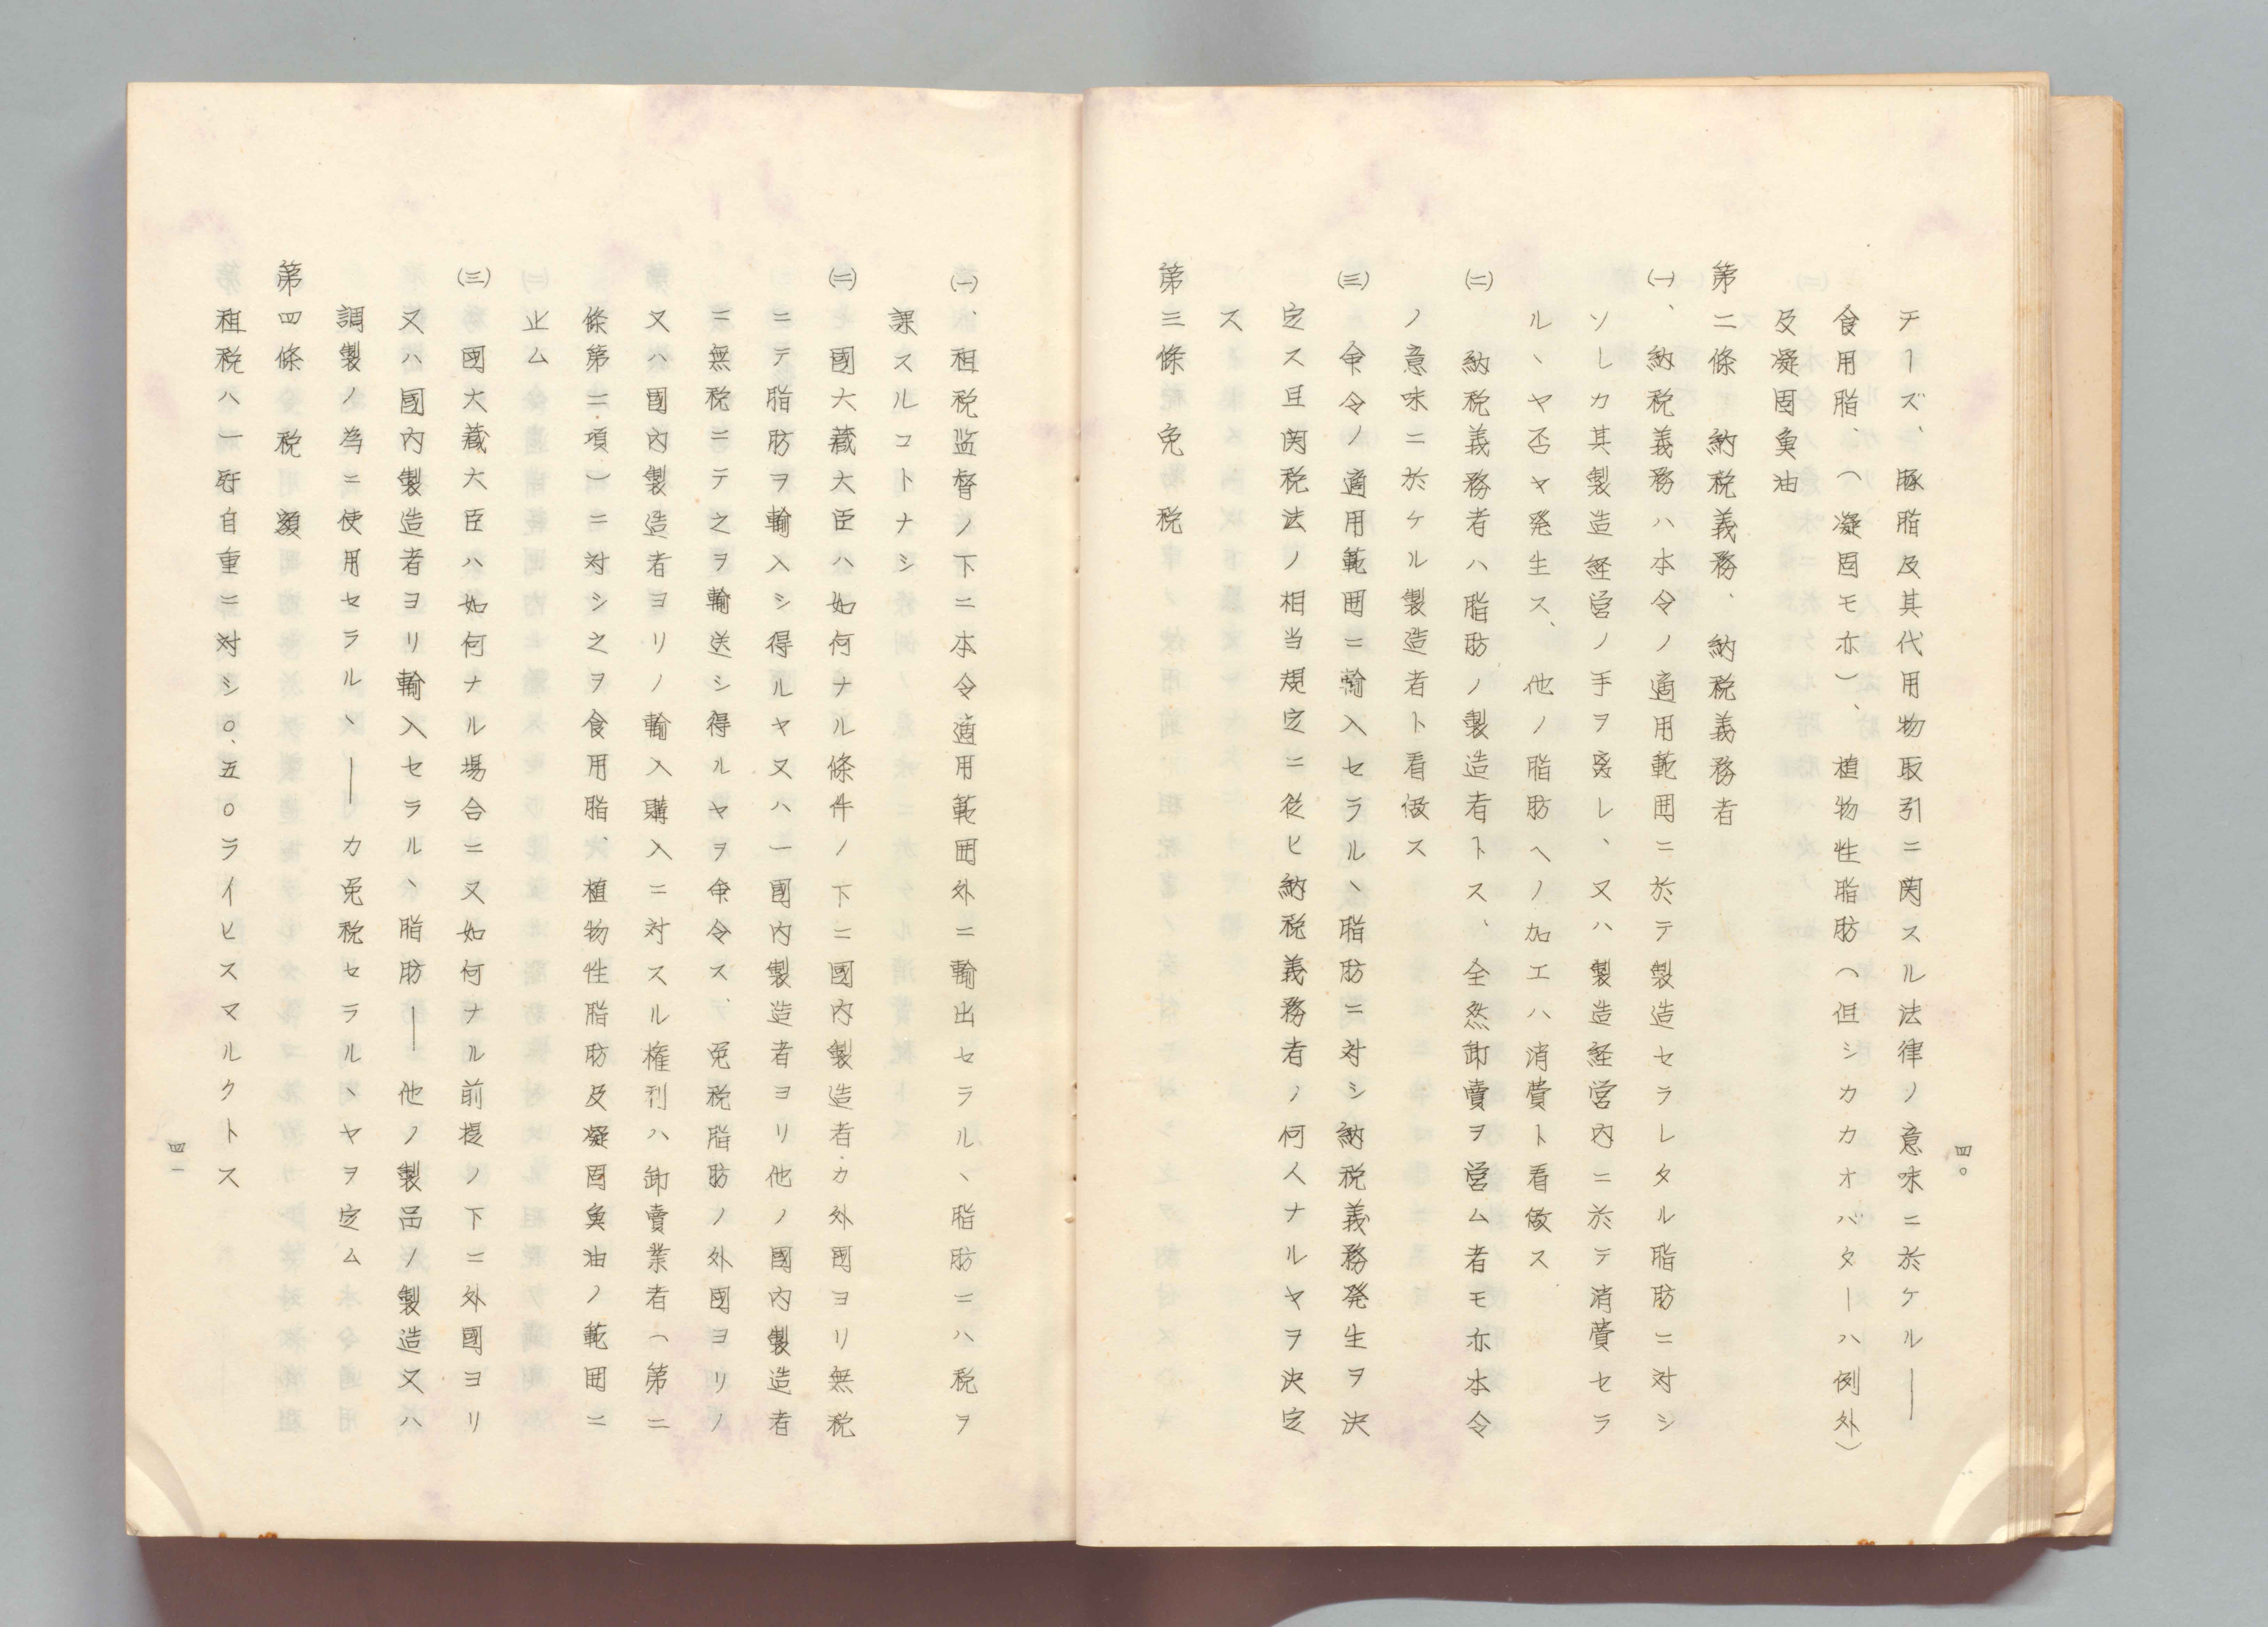 チーズ、豚脂及其代用物取引ニ関スル法律ノ意味ニ於ケル――
食用脂、(凝固モ亦)、植物性脂肪(但シカカオバターハ例外)
及凝固魚油
第二條 納税義務、納税義務者
㈠、納税義務ハ本令ノ適用範囲ニ於テ製造セラレタル脂肪ニ対シ
ソレカ其製造経営ノ手ヲ離レ、又ハ製造経営内ニ於テ消費セラ
ルヽヤ否ヤ発生ス、他ノ脂肪ヘノ加エハ消費ト看做ス
㈡ 納税義務者ハ脂肪ノ製造者トス、全然卸賣ヲ営ム者モ亦本令
ノ意味ニ於ケル製造者ト看做ス
㈢ 命令ノ適用範囲ニ輸入セラルヽ脂肪ニ対シ納税義務発生ヲ決
定ス且関税法ノ相当規定ニ從ヒ納税義務者ノ何人ナルヤヲ決定
ス
第三條 免税
四〇
㈠、租税監督ノ下ニ本令適用範囲外ニ輸出セラルヽ脂肪ニハ税ヲ
課スルコトナシ
㈡ 國大藏大臣ハ如何ナル條件ノ下ニ國内製造者カ外囯ヨリ無税
ニテ脂肪ヲ輸入シ得ルヤ又ハ一國内製造者ヨリ他ノ國内製造者
ニ無税ニテ之ヲ輸送シ得ルヤヲ命令ス、免税脂肪ノ外國ヨリノ
又ハ國内製造者ヨリノ輸入購入ニ対スル権利ハ卸賣業者(第二
條第二項)ニ対シ之ヲ食用脂、植物性脂肪及凝固魚油ノ範囲ニ
止ム
㈢ 國大藏大臣ハ如何ナル場合ニ又如何ナル前提ノ下ニ外國ヨリ
又ハ國内製造者ヨリ輸入セラルヽ脂肪――他ノ製品ノ製造又ハ
調製ノ為ニ使用セラルヽ――カ免税セラルヽヤヲ定ム
第四條 税額
租税ハ一瓩自重ニ対シ〇、五〇ライヒスマルクトス
四一